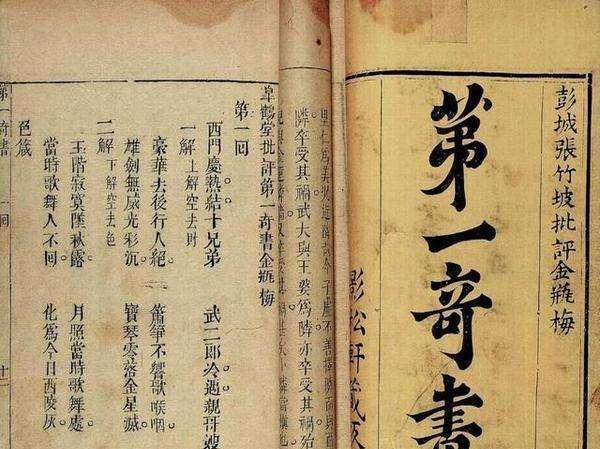 彭城張竹坡批評金瓶梅
第一奇書
影松軒藏
隣卒受其禍武大與王婆為隣亦卒受其禍
臯鶴堂批評第一奇書金瓶梅
第一回
西門慶熱結十兄弟 武二郎冷遇親哥嫂
一解 上解空去財
豪華去後行人絕 簫箏不響歌喉咽
雄劍無威光彩沉 寶琴零落金星滅
二解 下解空去色
玉階寂寞墜秋露 月照當時歌舞處
當時歌舞人不回 化為今日西陵灰
色箴
第一奇書 一回